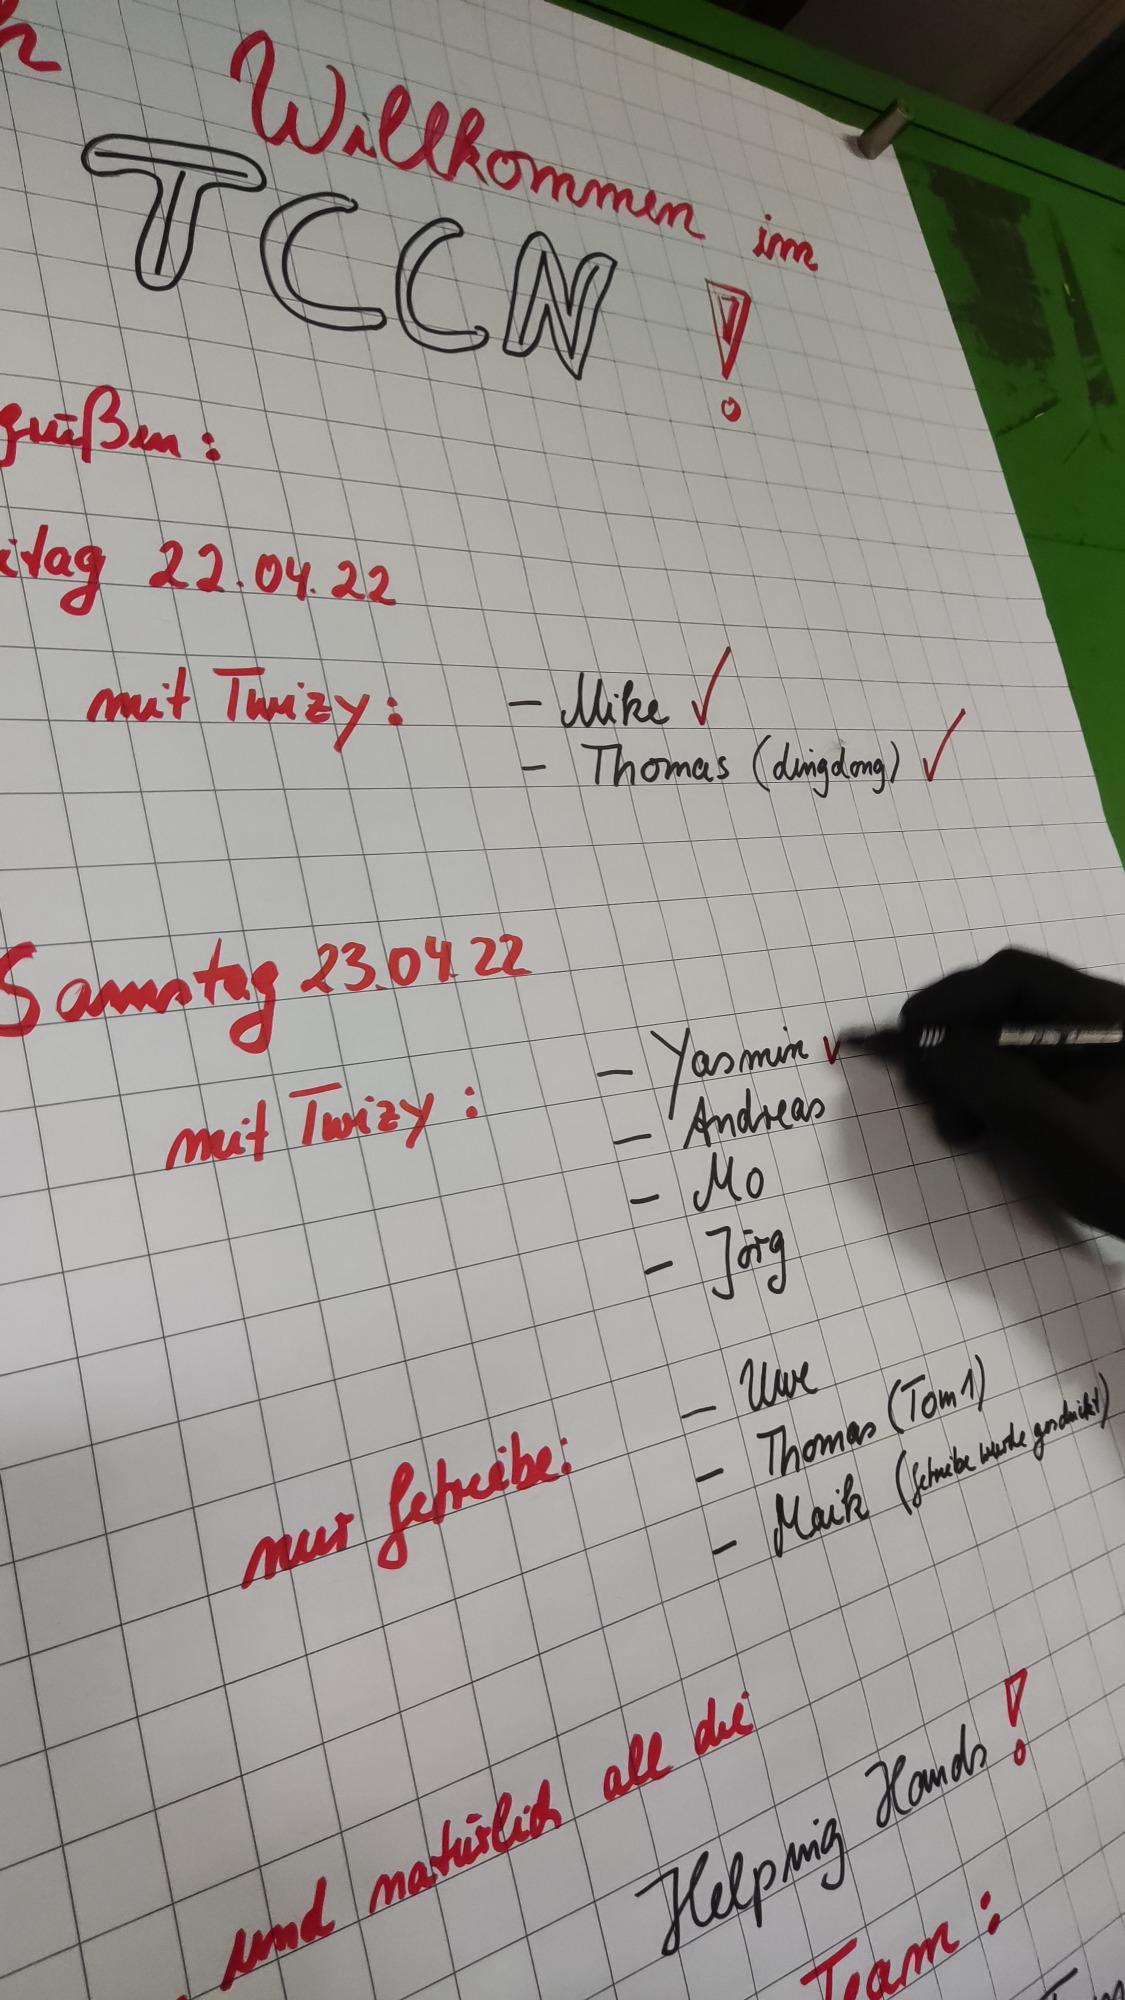 h Willkommen im
TCCN !
grüßen:
itag 22.04.22
mit Twizy: - Mike ✓
- Thomas (dingdong) ✓
Samstag 23.04.22
mit Twizy: - Yasmin ✓
- Andreas
- Mo
- Jörg
nur Getriebe: - Uwe
- Thomas (Tom1)
- Maik (Getriebe wurde geschickt)
und natürlich all die
Helping Hands!
Team: